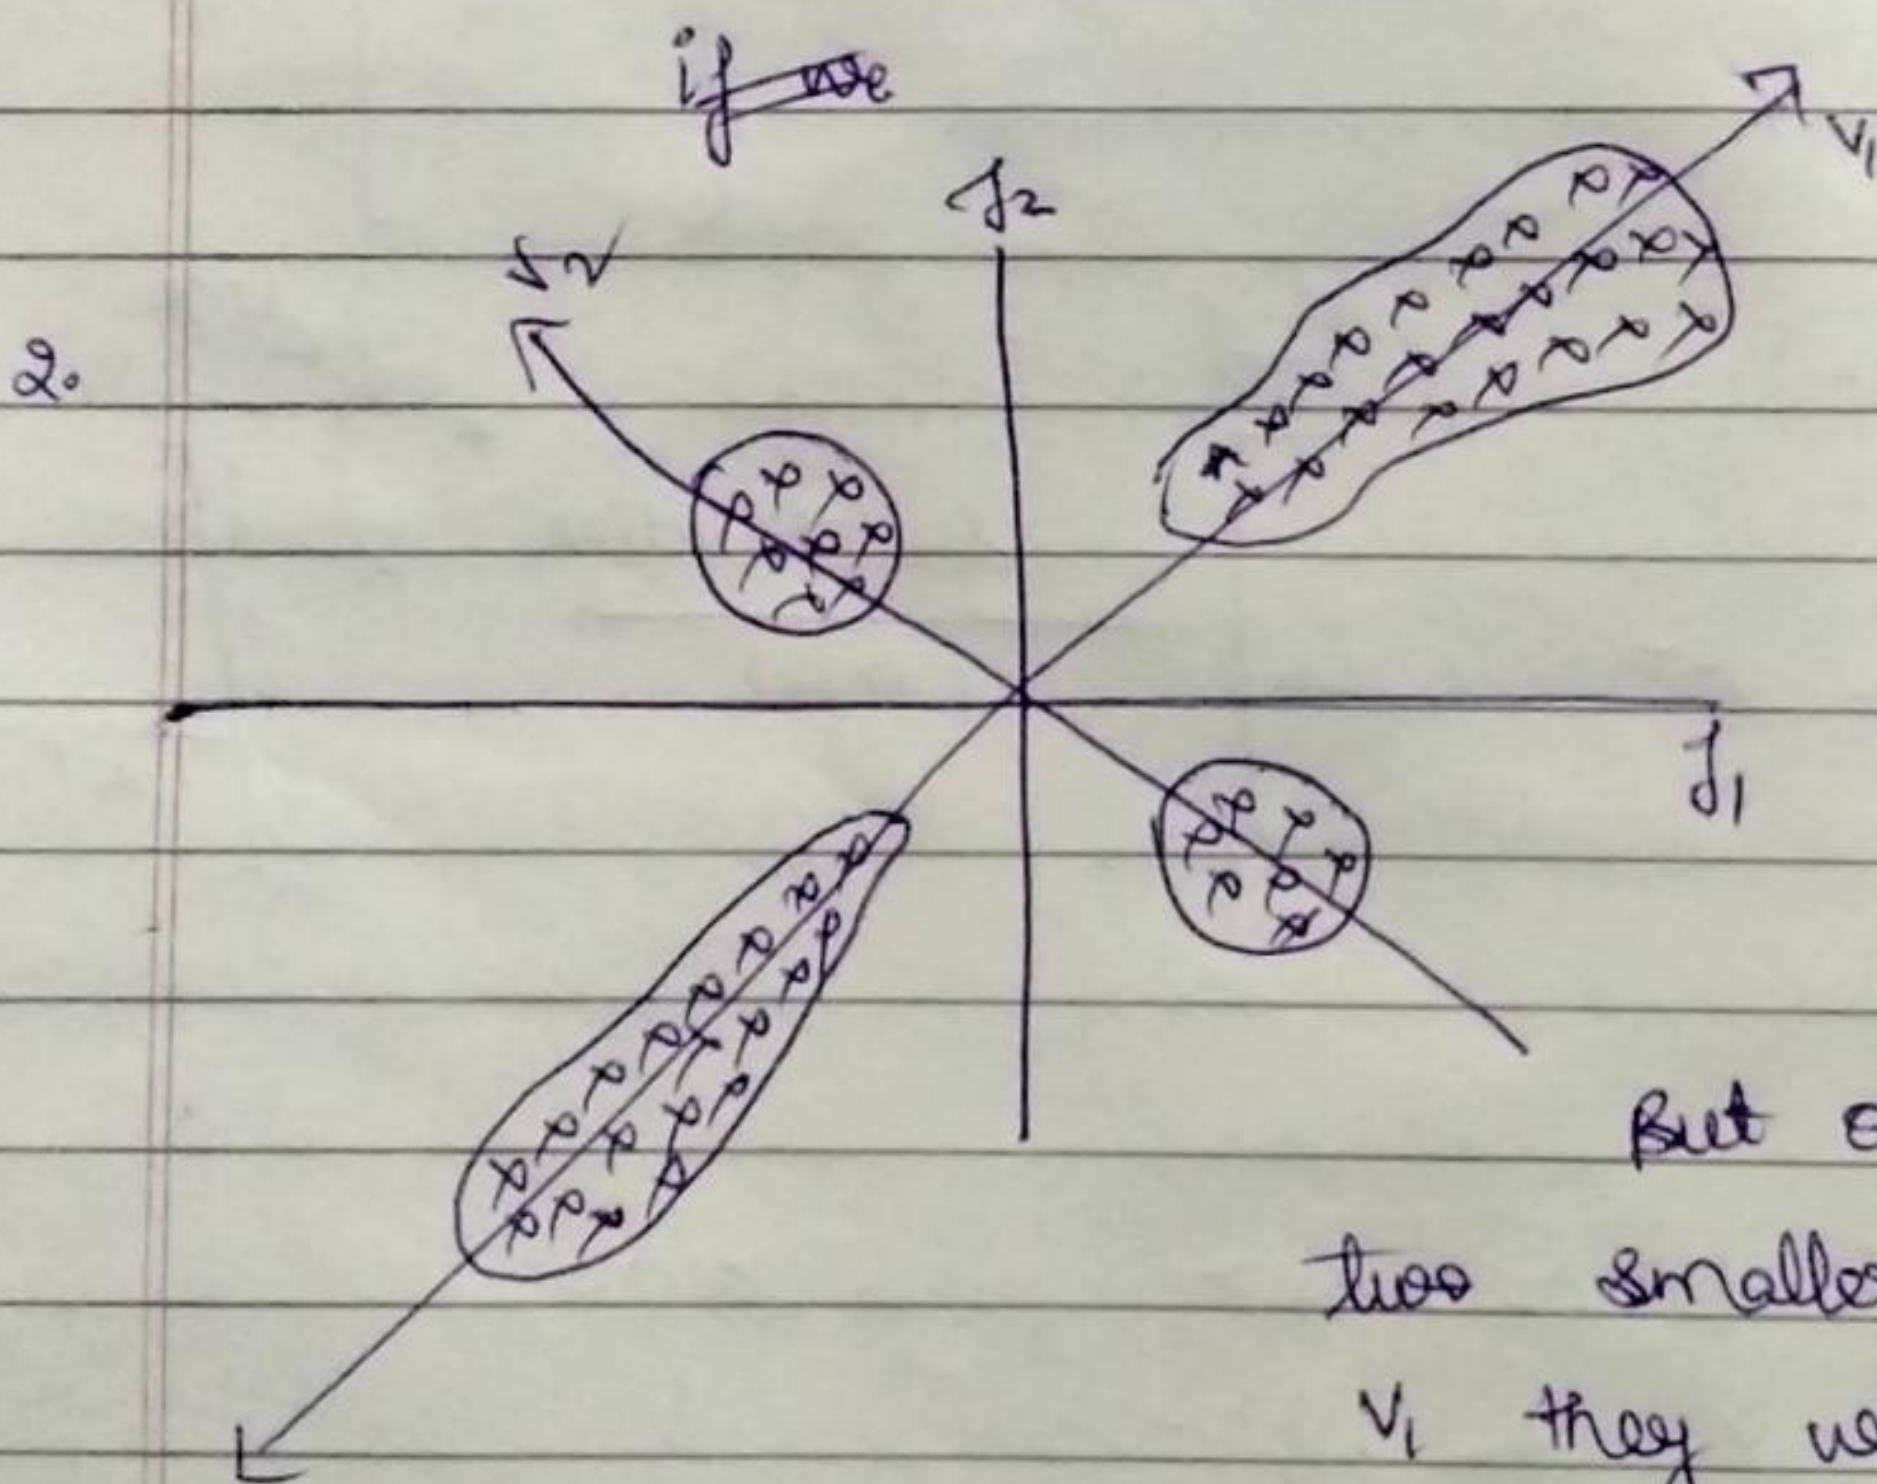 if we
f2
V1
V2
2.
f1
But
two smaller
V1 they